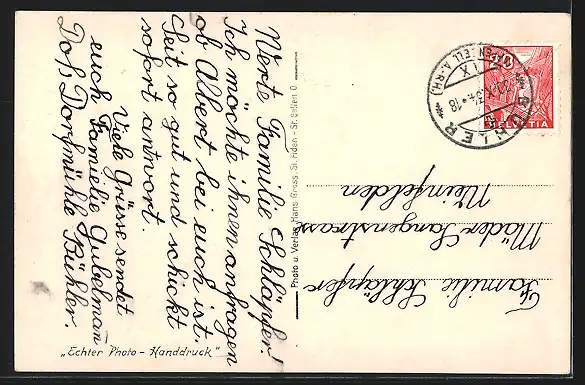 Werte Familie Schläpfer!
Ich möchte ihnen anfragen
ob Albert bei euch ist.
Seit so gut und schickt
sofort antwort.
Viele Grüsse sendet
euch Familie Gubelman
Dofs, Dorfmühle Bühler.
„Echter Photo - Handdruck"
Photo u. Verlag Hans Gross, St. Fiden - St. Gallen O
20
HELVETIA
BÜHLER
(APPENZELL A.-RH.)
Familie Schläpfer
Mäder Langenstrass
Weinfelden